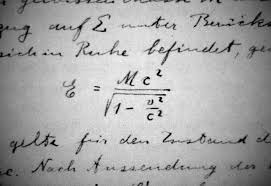 zug auf Σ unter Berück
sich in Ruhe befindet, ge
ℰ = Mc² / √(1 - v²/c²)
gelte für den Zustand d
se. Nach Aussendung des